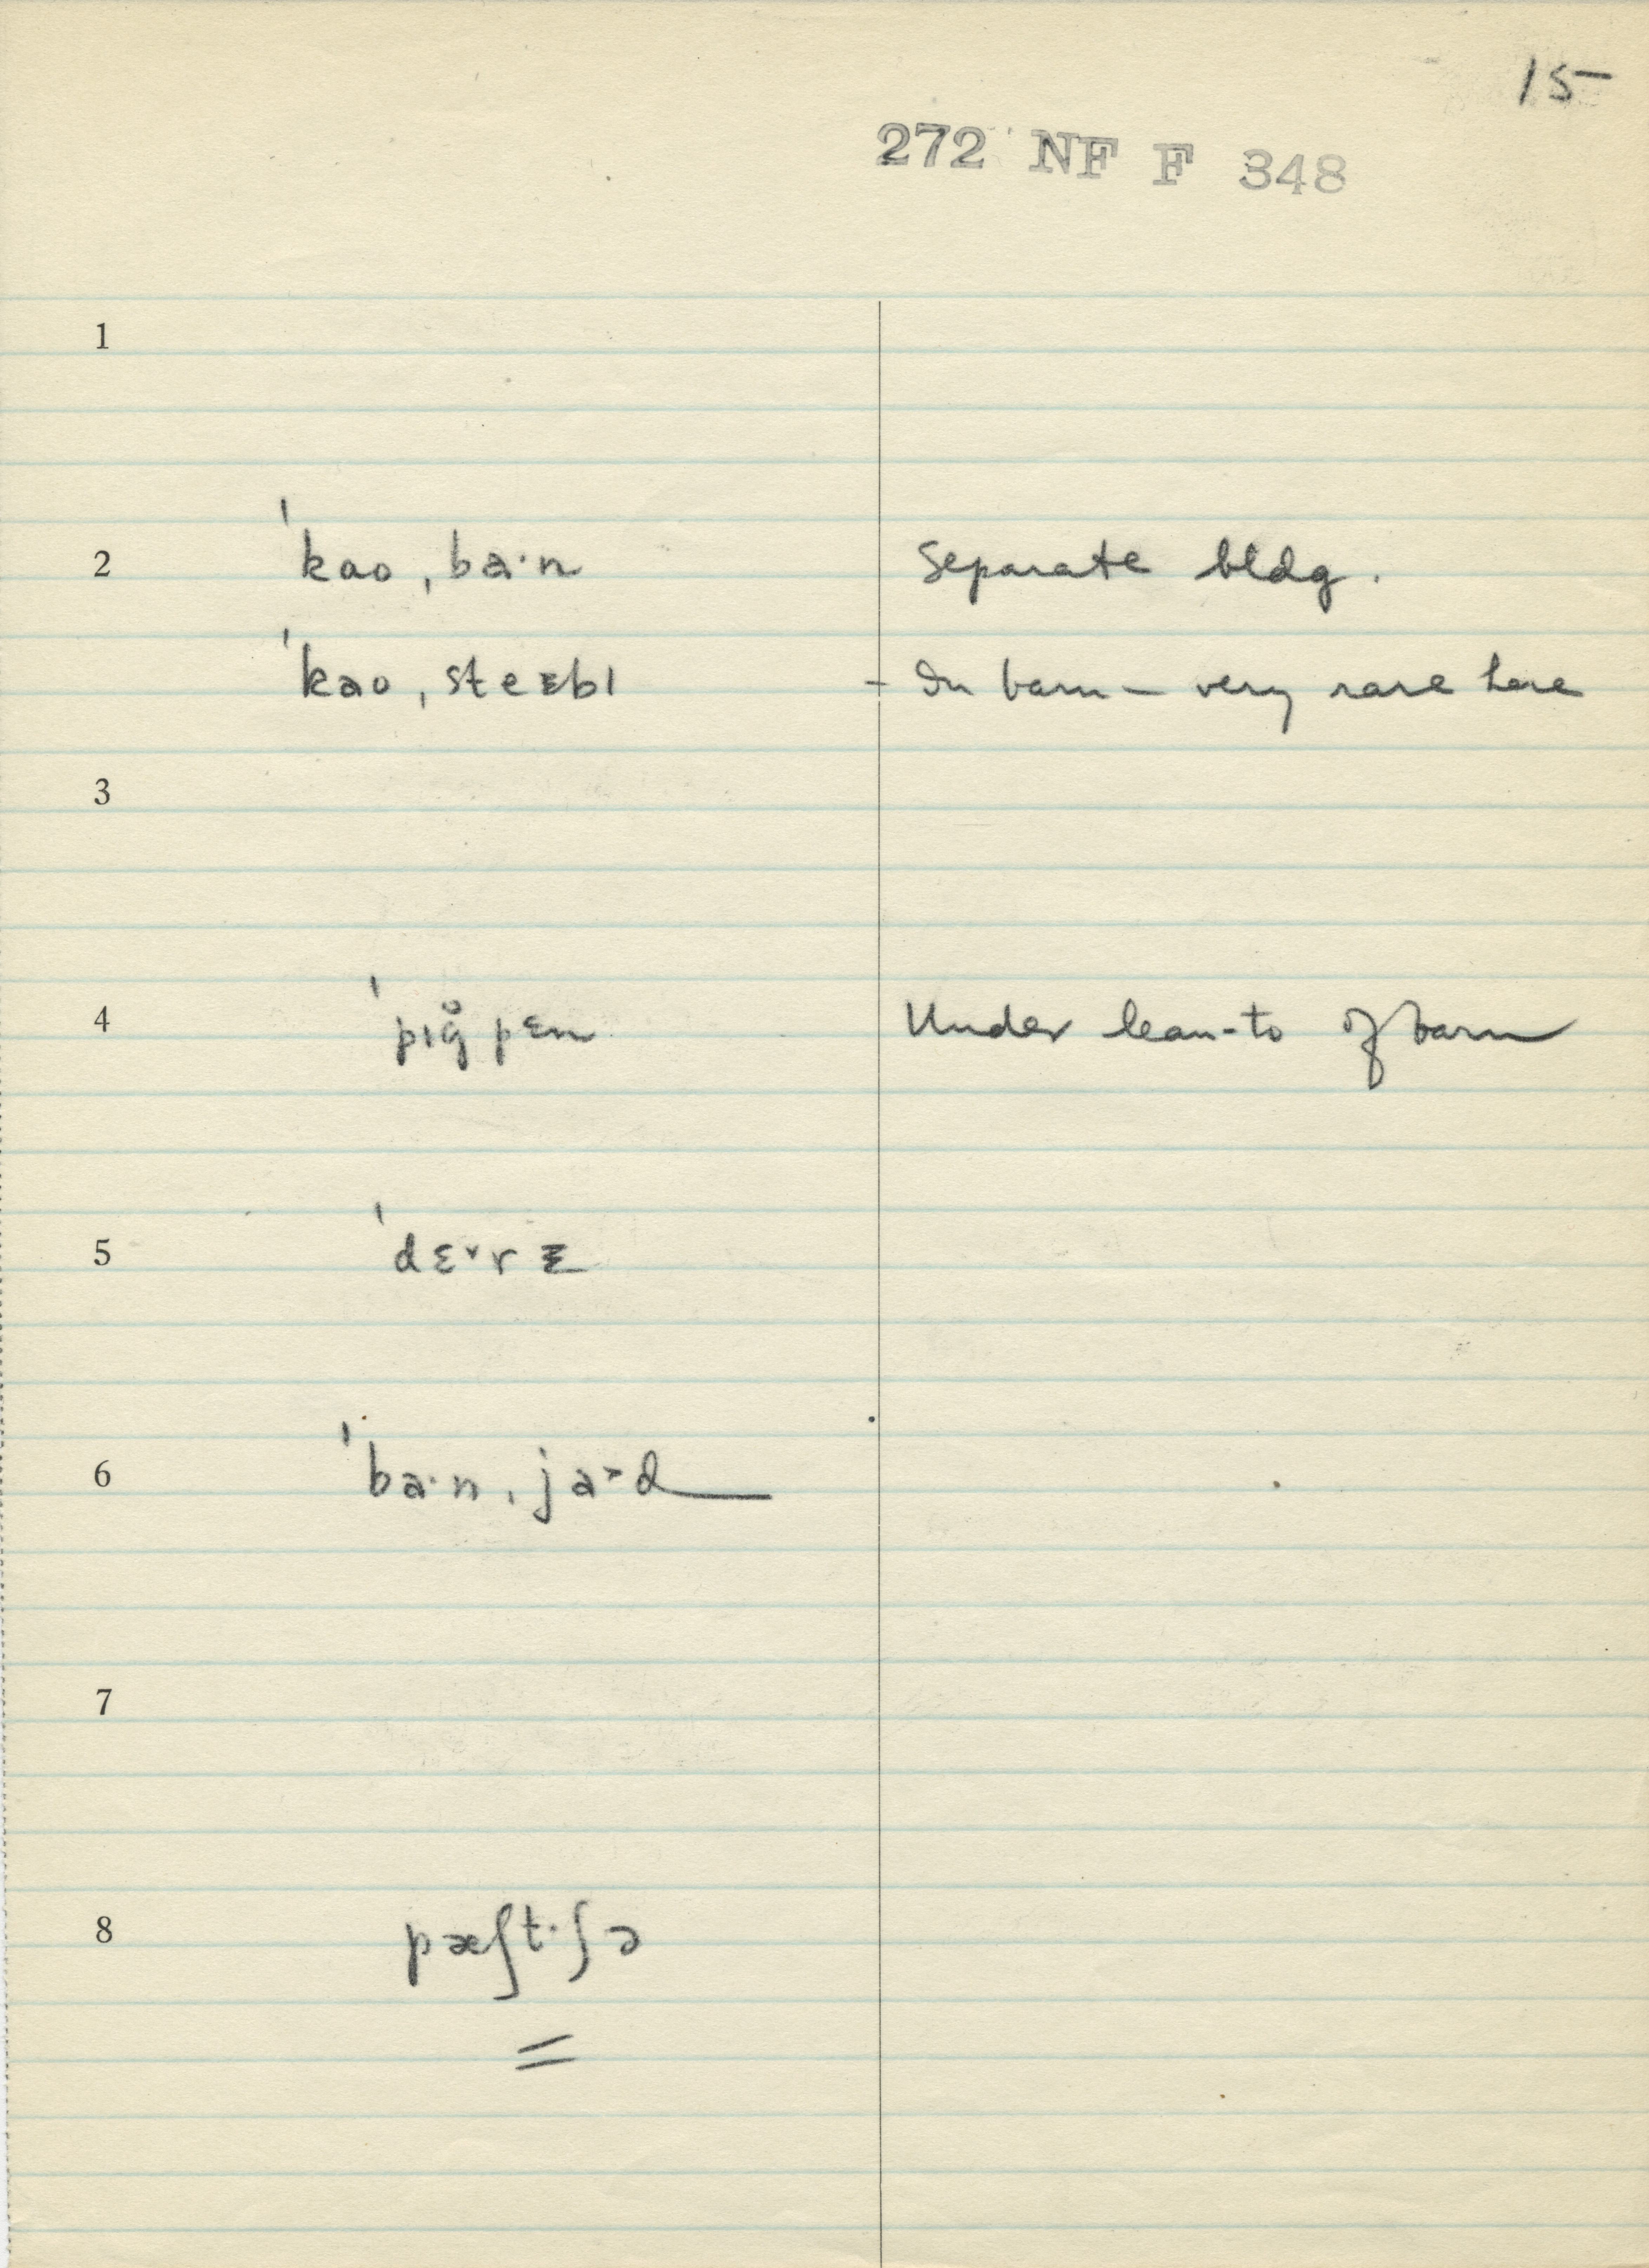 15
272 NF F 348
1
2 ˈkao ˌba·n Separate bldg.
ˈkao ˌsteɪbl – In barn – very rare here
3
4 ˈpɪg̊ pɛn Under lean-to of barn
5 ˈdɛ˅rɪ
6 ˈba·n ˌja˃d
7
8 pæʃt·ʃə
=